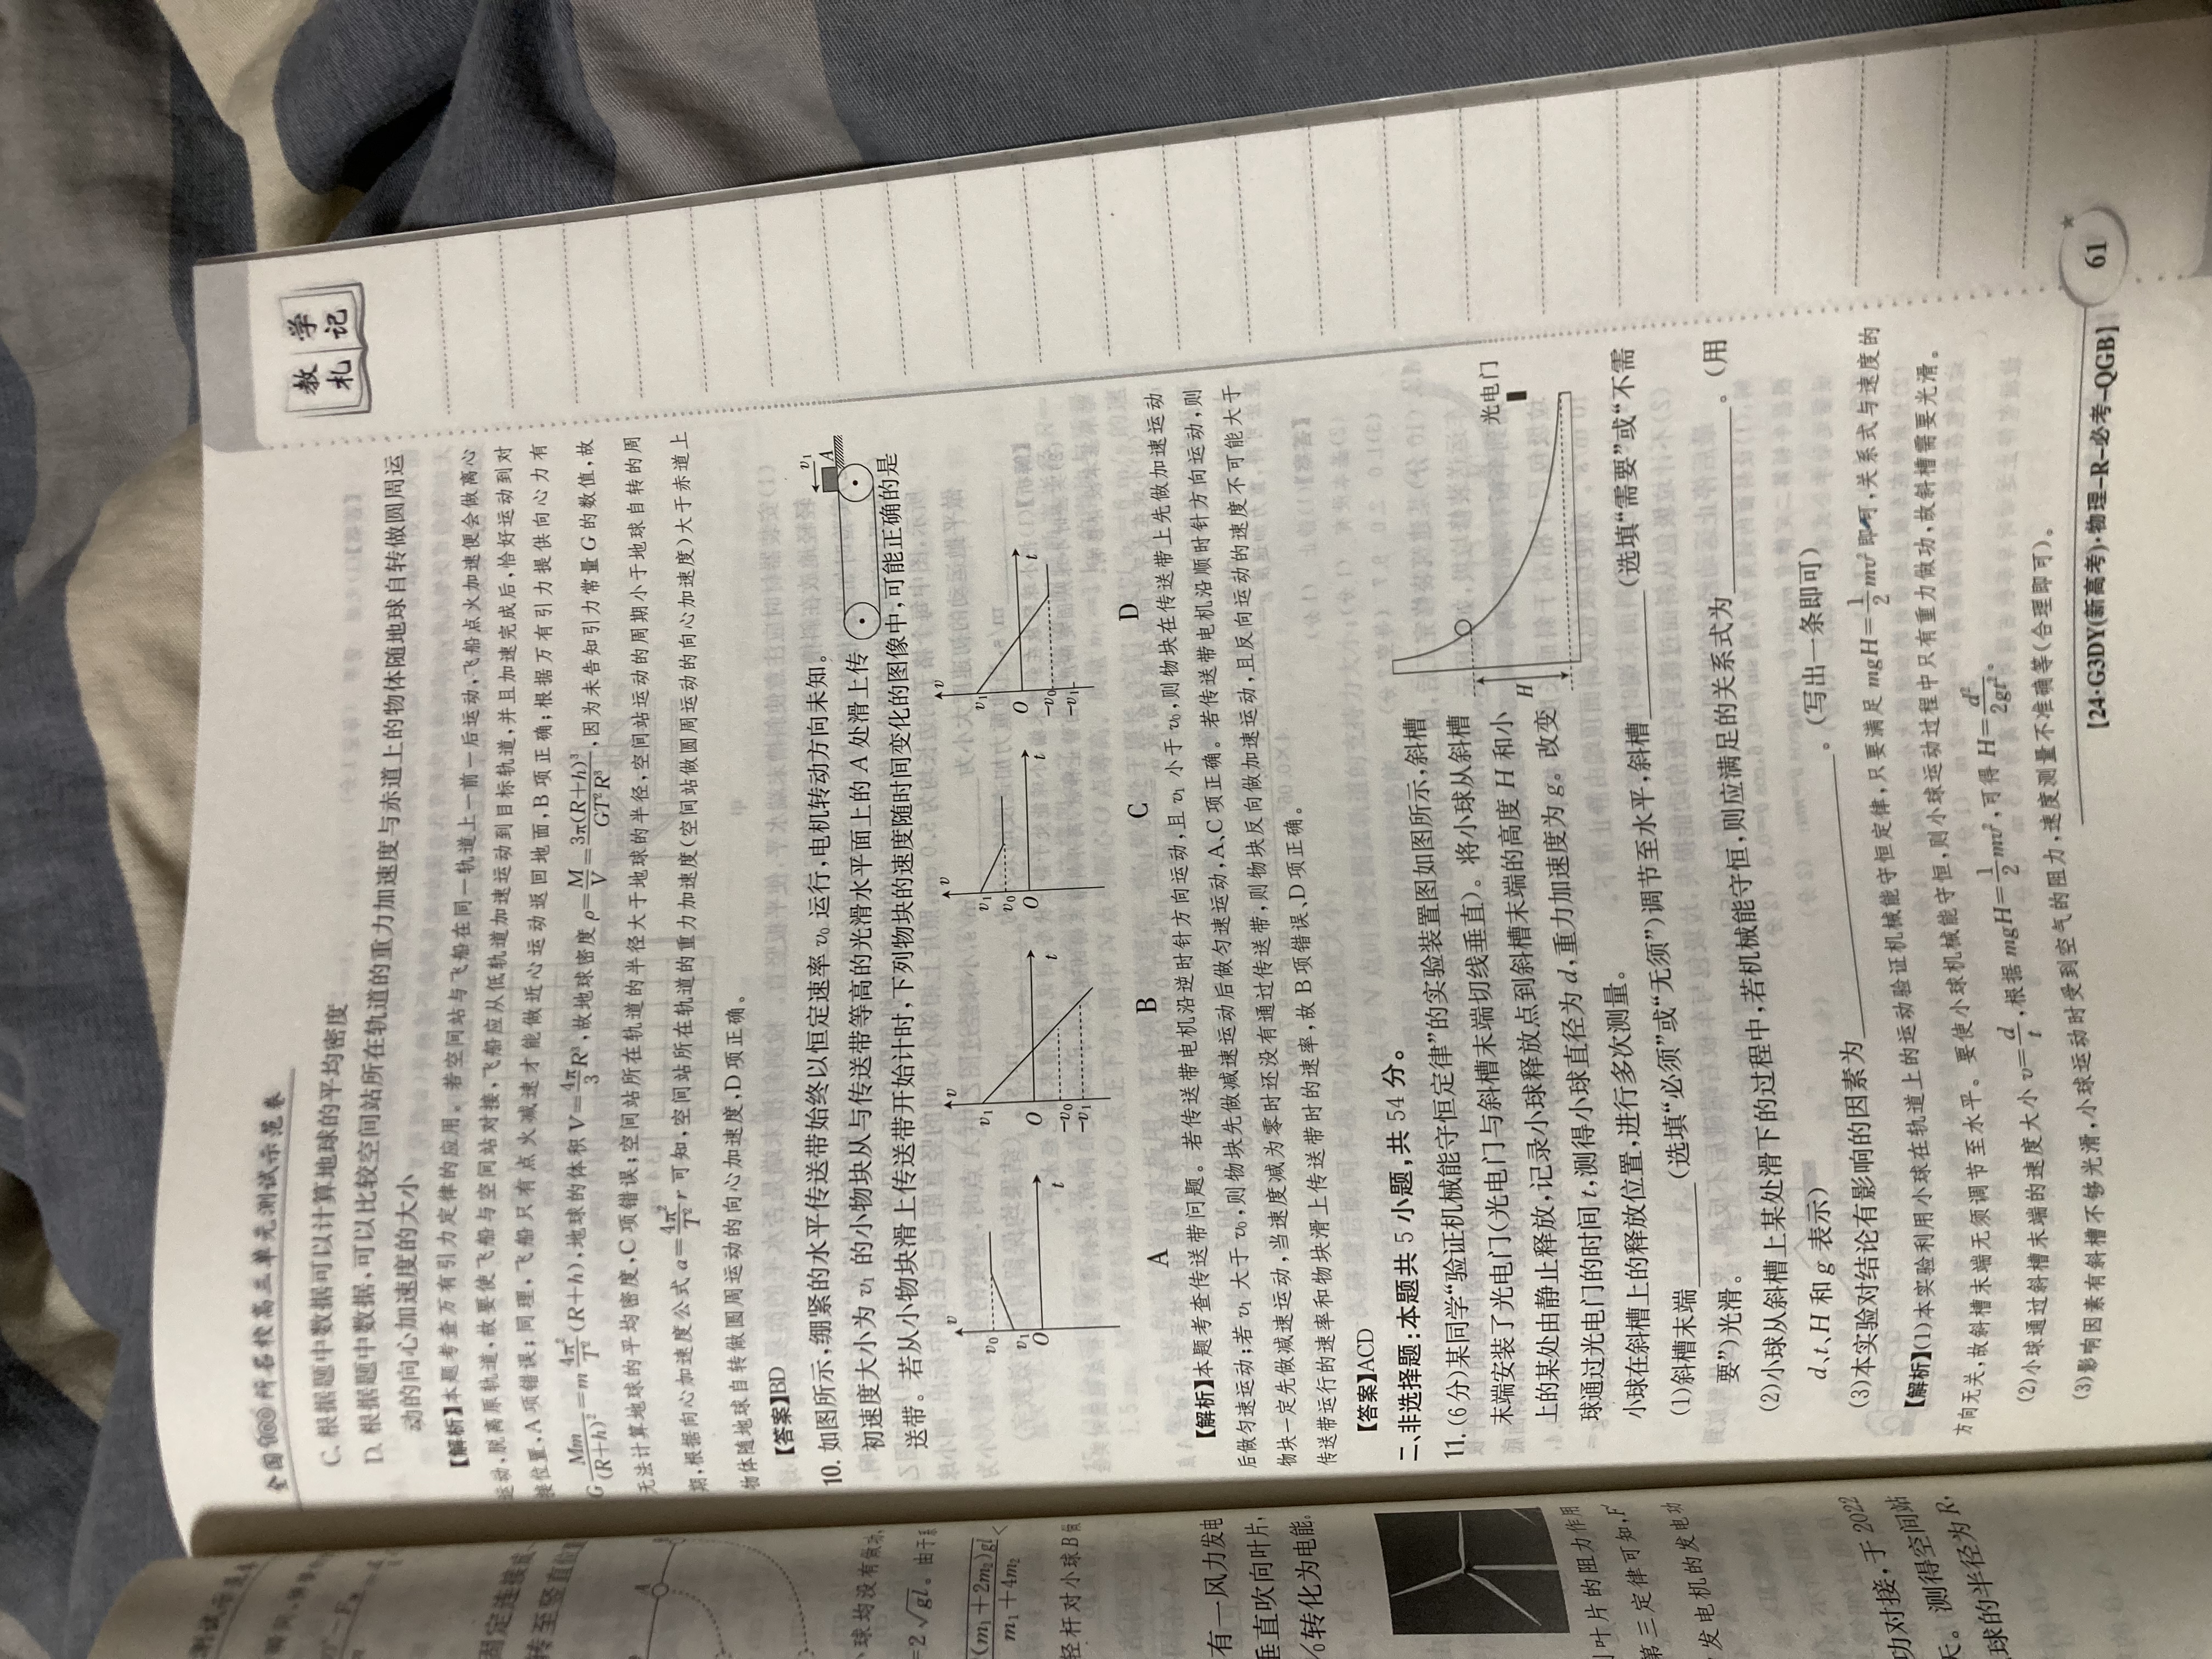 全国100所名校高三单元测试示范卷
教学
札记
C. 根据题中数据可以计算地球的平均密度
D. 根据题中数据,可以比较空间站所在轨道的重力加速度与赤道上的物体随地球自转做圆周运
动的向心加速度的大小
【解析】本题考查万有引力定律的应用。若空间站与飞船在同一轨道上一前一后运动,飞船点火加速便会做离心
运动,脱离原轨道,故要使飞船与空间站对接,飞船应从低轨道加速运动到目标轨道,并且加速完成后,恰好运动到对
接位置,A项错误;同理,飞船只有点火减速才能做近心运动返回地面,B项正确;根据万有引力提供向心力有
G\frac{Mm}{(R+h)^2}=m\frac{4π^2}{T^2}(R+h),地球的体积V=\frac{4π}{3}R^3,故地球密度ρ=\frac{M}{V}=\frac{3π(R+h)^3}{GT^2R^3},因为未告知引力常量G的数值,故
无法计算地球的平均密度,C项错误;空间站所在轨道的半径大于地球的半径,空间站运动的周期小于地球自转的周
期,根据向心加速度公式a=\frac{4π^2}{T^2}r可知,空间站所在轨道的重力加速度(空间站做圆周运动的向心加速度)大于赤道上
物体随地球自转做圆周运动的向心加速度,D项正确。
【答案】BD
10. 如图所示,绷紧的水平传送带始终以恒定速率v₀运行,电机转动方向未知。
初速度大小为v₁的小物块从与传送带等高的光滑水平面上的A处滑上传
送带。若从小物块滑上传送带开始计时,下列物块的速度随时间变化的图像中,可能正确的是
v₁
A
v
v₀
v₁
O
t
v
v₁
O
-v₀
-v₁
t
v
v₁
v₀
O
t
v
v₁
O
-v₀
-v₁
t
A B C D
【解析】本题考查传送带问题。若传送带电机沿逆时针方向运动,且v₁小于v₀,则物块在传送带上先做加速运动
后做匀速运动;若v₁大于v₀,则物块先做减速运动后做匀速运动,A、C项正确。若传送带电机沿顺时针方向运动,则
物块一定先做减速运动,当速度减为零时还没有通过传送带,则物块反向做加速运动,且反向运动的速度不可能大于
传送带运行的速率和物块滑上传送带时的速率,故B项错误、D项正确。
【答案】ACD
二、非选择题:本题共5小题,共54分。
11. (6分)某同学“验证机械能守恒定律”的实验装置图如图所示,斜槽
末端安装了光电门(光电门与斜槽末端切线垂直)。将小球从斜槽
上的某处由静止释放,记录小球释放点到斜槽末端的高度H和小
球通过光电门的时间t,测得小球直径为d,重力加速度为g。改变
小球在斜槽上的释放位置,进行多次测量。
光电门
H
(1)斜槽末端________(选填“必须”或“无须”)调节至水平,斜槽________(选填“需要”或“不需
要”)光滑。
(2)小球从斜槽上某处滑下的过程中,若机械能守恒,则应满足的关系式为________。(用
d、t、H和g表示)
(3)本实验对结论有影响的因素为________。(写出一条即可)
【解析】(1)本实验利用小球在轨道上的运动验证机械能守恒定律,只要满足mgH=\frac{1}{2}mv^2即可,关系式与速度的
方向无关,故斜槽末端无须调节至水平。要使小球机械能守恒,则小球运动过程中只有重力做功,故斜槽需要光滑。
(2)小球通过斜槽末端的速度大小v=\frac{d}{t},根据mgH=\frac{1}{2}mv^2,可得H=\frac{d^2}{2gt^2}。
(3)影响因素有斜槽不够光滑,小球运动时受到空气的阻力,速度测量不准确等(合理即可)。
【24·G3DY(新高考)·物理-R-必考-QGB】
61
A
球均没有做功,
=2\sqrt{gl}。由于
\frac{(m₁+2m₂)gl}{m₁+4m₂}
轻杆对小球B做
有一风力发电
垂直吹向叶片,
%转化为电能。
叶片的阻力作用
第三定律可知,F
发电机的发电功
功对接,于2022
天。测得空间站
球的半径为R,